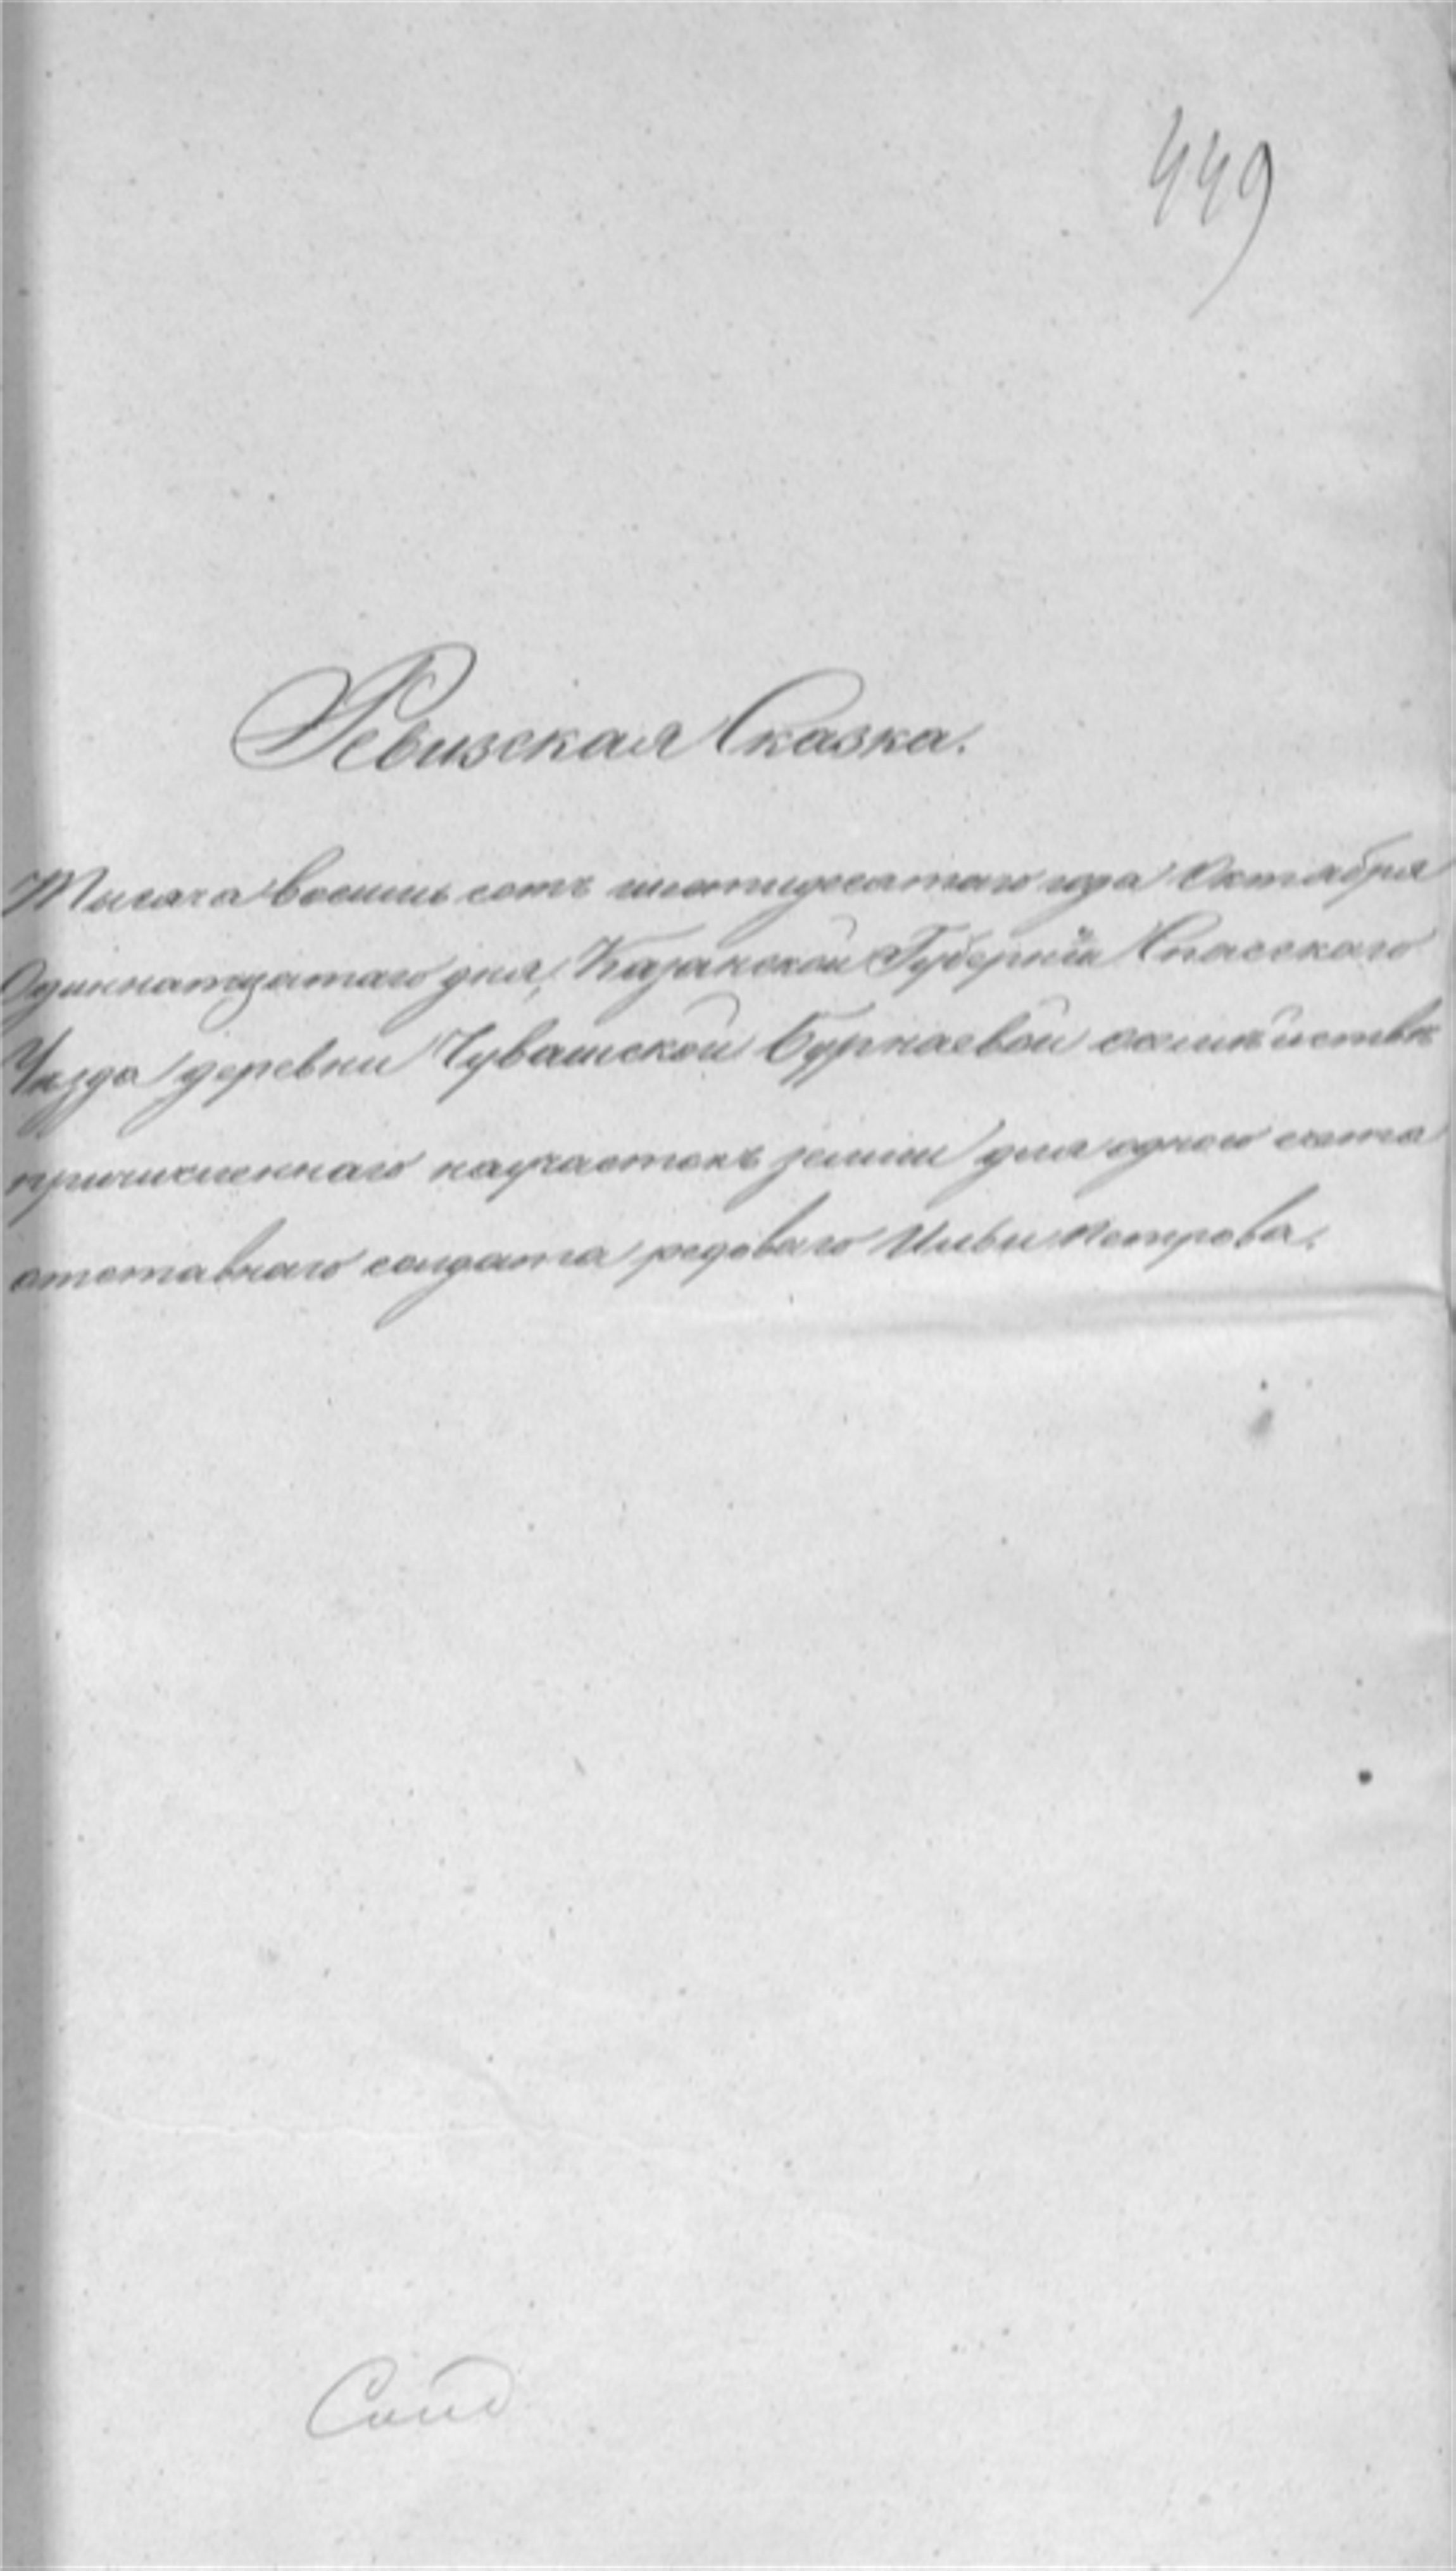 449
Ревизская Сказка.
Тысяча восемь сотъ шестидесятаго года Октября
Одиннатцатаго дня, Казанской Губерніи Спасского
Уѣзда деревни Чувашской Бурнаевой осемѣйствѣ
причисленнаго научастокъ земли для одного счета
отставнаго солдата редоваго Ильи Петрова.